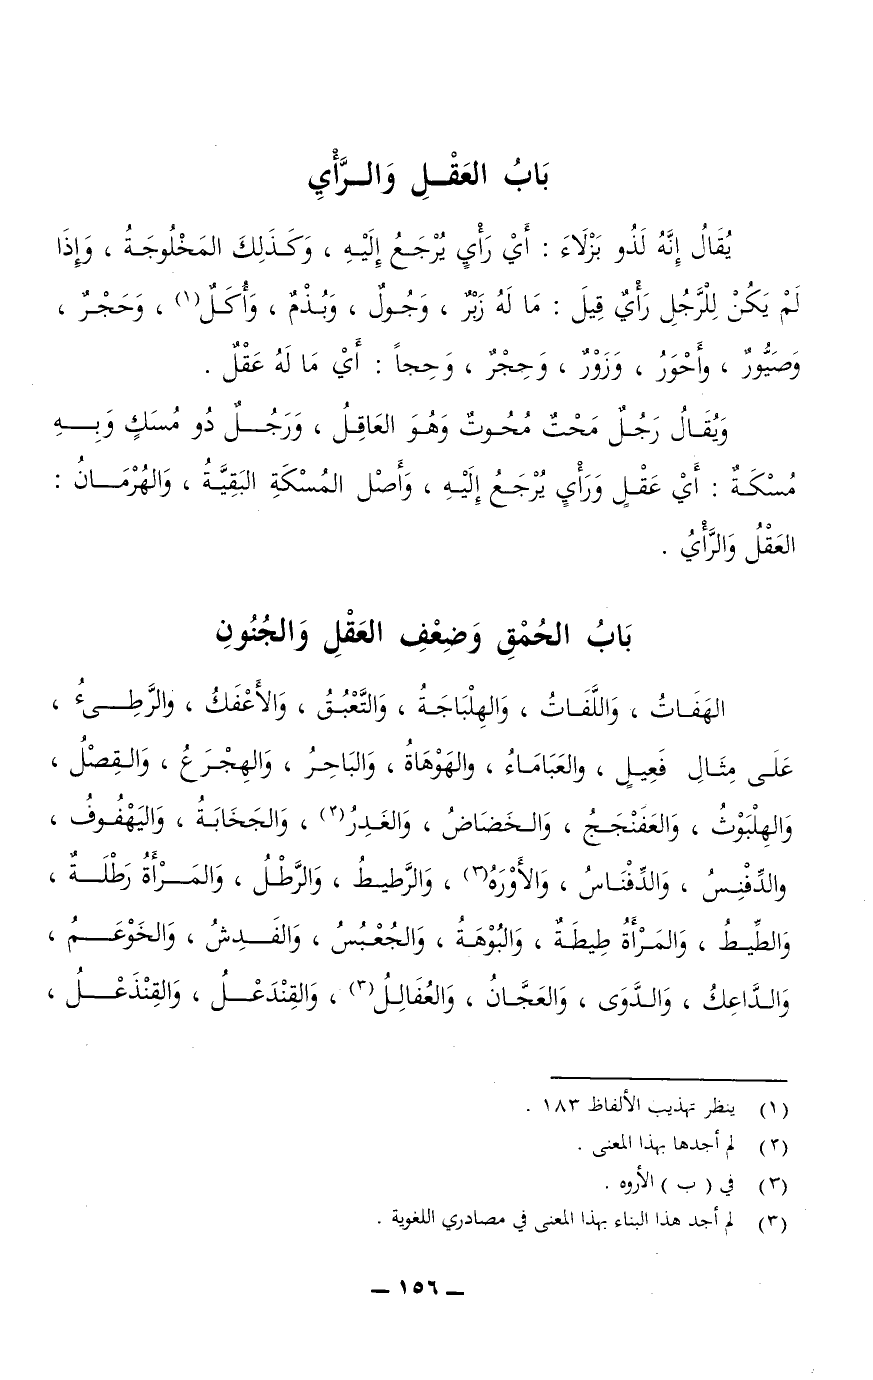 بَابُ العَقْـلِ وَالـرَّأْيِ
يُقَالُ إِنَّهُ لَذُو بَزْلَاءَ : أَيْ رَأْيٍ يُرْجَـعُ إِلَيْـهِ ، وَكَـذَلِكَ المَخْلُوجَـةُ ، وَإِذَا
لَمْ يَكُنْ لِلْرَّجُلِ رَأْيٌ قِيلَ : مَا لَهُ زَبْرٌ ، وَجُـولٌ ، وَبُـذْمٌ ، وَأُكَـلٌ(١) ، وَحَجْـرٌ ،
وَصَيُّورٌ ، وأَحْوَرُ ، وَزَوْرٌ ، وَحِجْرٌ ، وَحِجاً : أَيْ مَا لَهُ عَقْلٌ .
وَيُقَـالُ رَجُـلٌ مَحْتٌ مُحُوتٌ وَهُـوَ العَاقِـلُ ، وَرَجُـــلٌ ذُو مُسَكٍ وَبِـــهِ
مُسْكَـةٌ : أَيْ عَقْـلٍ وَرَأْيٍ يُرْجَـعُ إِلَيْـهِ ، وَأَصْل المُسْكَةِ البَقِيَّـةُ ، وَالهُرْمَـــانُ :
العَقْلُ وَالرَّأْيُ .
بَابُ الحُمْقِ وَضِعْفِ العَقْلِ وَالجُنُونِ
الهَفَـاتُ ، وَاللَّفَـاتُ ، وَالهِلْبَاجَـةُ ، وَالتَّعْبُـقُ ، وَالأَعْفَكُ ، والرَّطِـــيءُ ،
عَلَـى مِثَـالِ فَعِيـلٍ ، والعَبَامَـاءُ ، والهَوْهَاةُ ، وَالبَاحِـرُ ، وَالهِجْـرَعُ ، وَالـقِصْلُ ،
وَالهِلْبَوْثُ ، وَالعَفَنْجَـجُ ، وَالـخَضَاضُ ، وَالغَـدِرُ(٢) ، وَالجَخَابَـةُ ، وَاليَهْفُـوفُ ،
والدِّفْنِـسُ ، وَالدِّفْنَـاسُ ، وَالأَوْرَهُ(٣) ، وَالرَّطِيـطُ ، وَالرَّطْلُ ، وَالمَـــرْأَةُ رَطْلَـــة ،
وَالطِّيـطُ ، وَالمَـرْأَةُ طِيطَةٌ ، وَالبُوْهَةُ ، وَالجُعْبُسُ ، وَالفَـــدِشُ ، وَالخَوْعَـــمُ ،
وَالـدَّاعِكُ ، وَالـدَّوَى ، وَالعَجَّـانُ ، وَالعُفَالِـلُ(٣) ، وَالقِنْدَعْـــلُ ، وَالقِنْذَعْـــلُ ،
(١) ينظر تهذيب الألفاظ ١٨٣ .
(٢) لم أجدها بهذا المعنى .
(٣) في ( ب ) الأروه .
(٣) لم أجد هذا البناء بهذا المعنى في مصادري اللغوية .
ــ ١٥٦ ــ